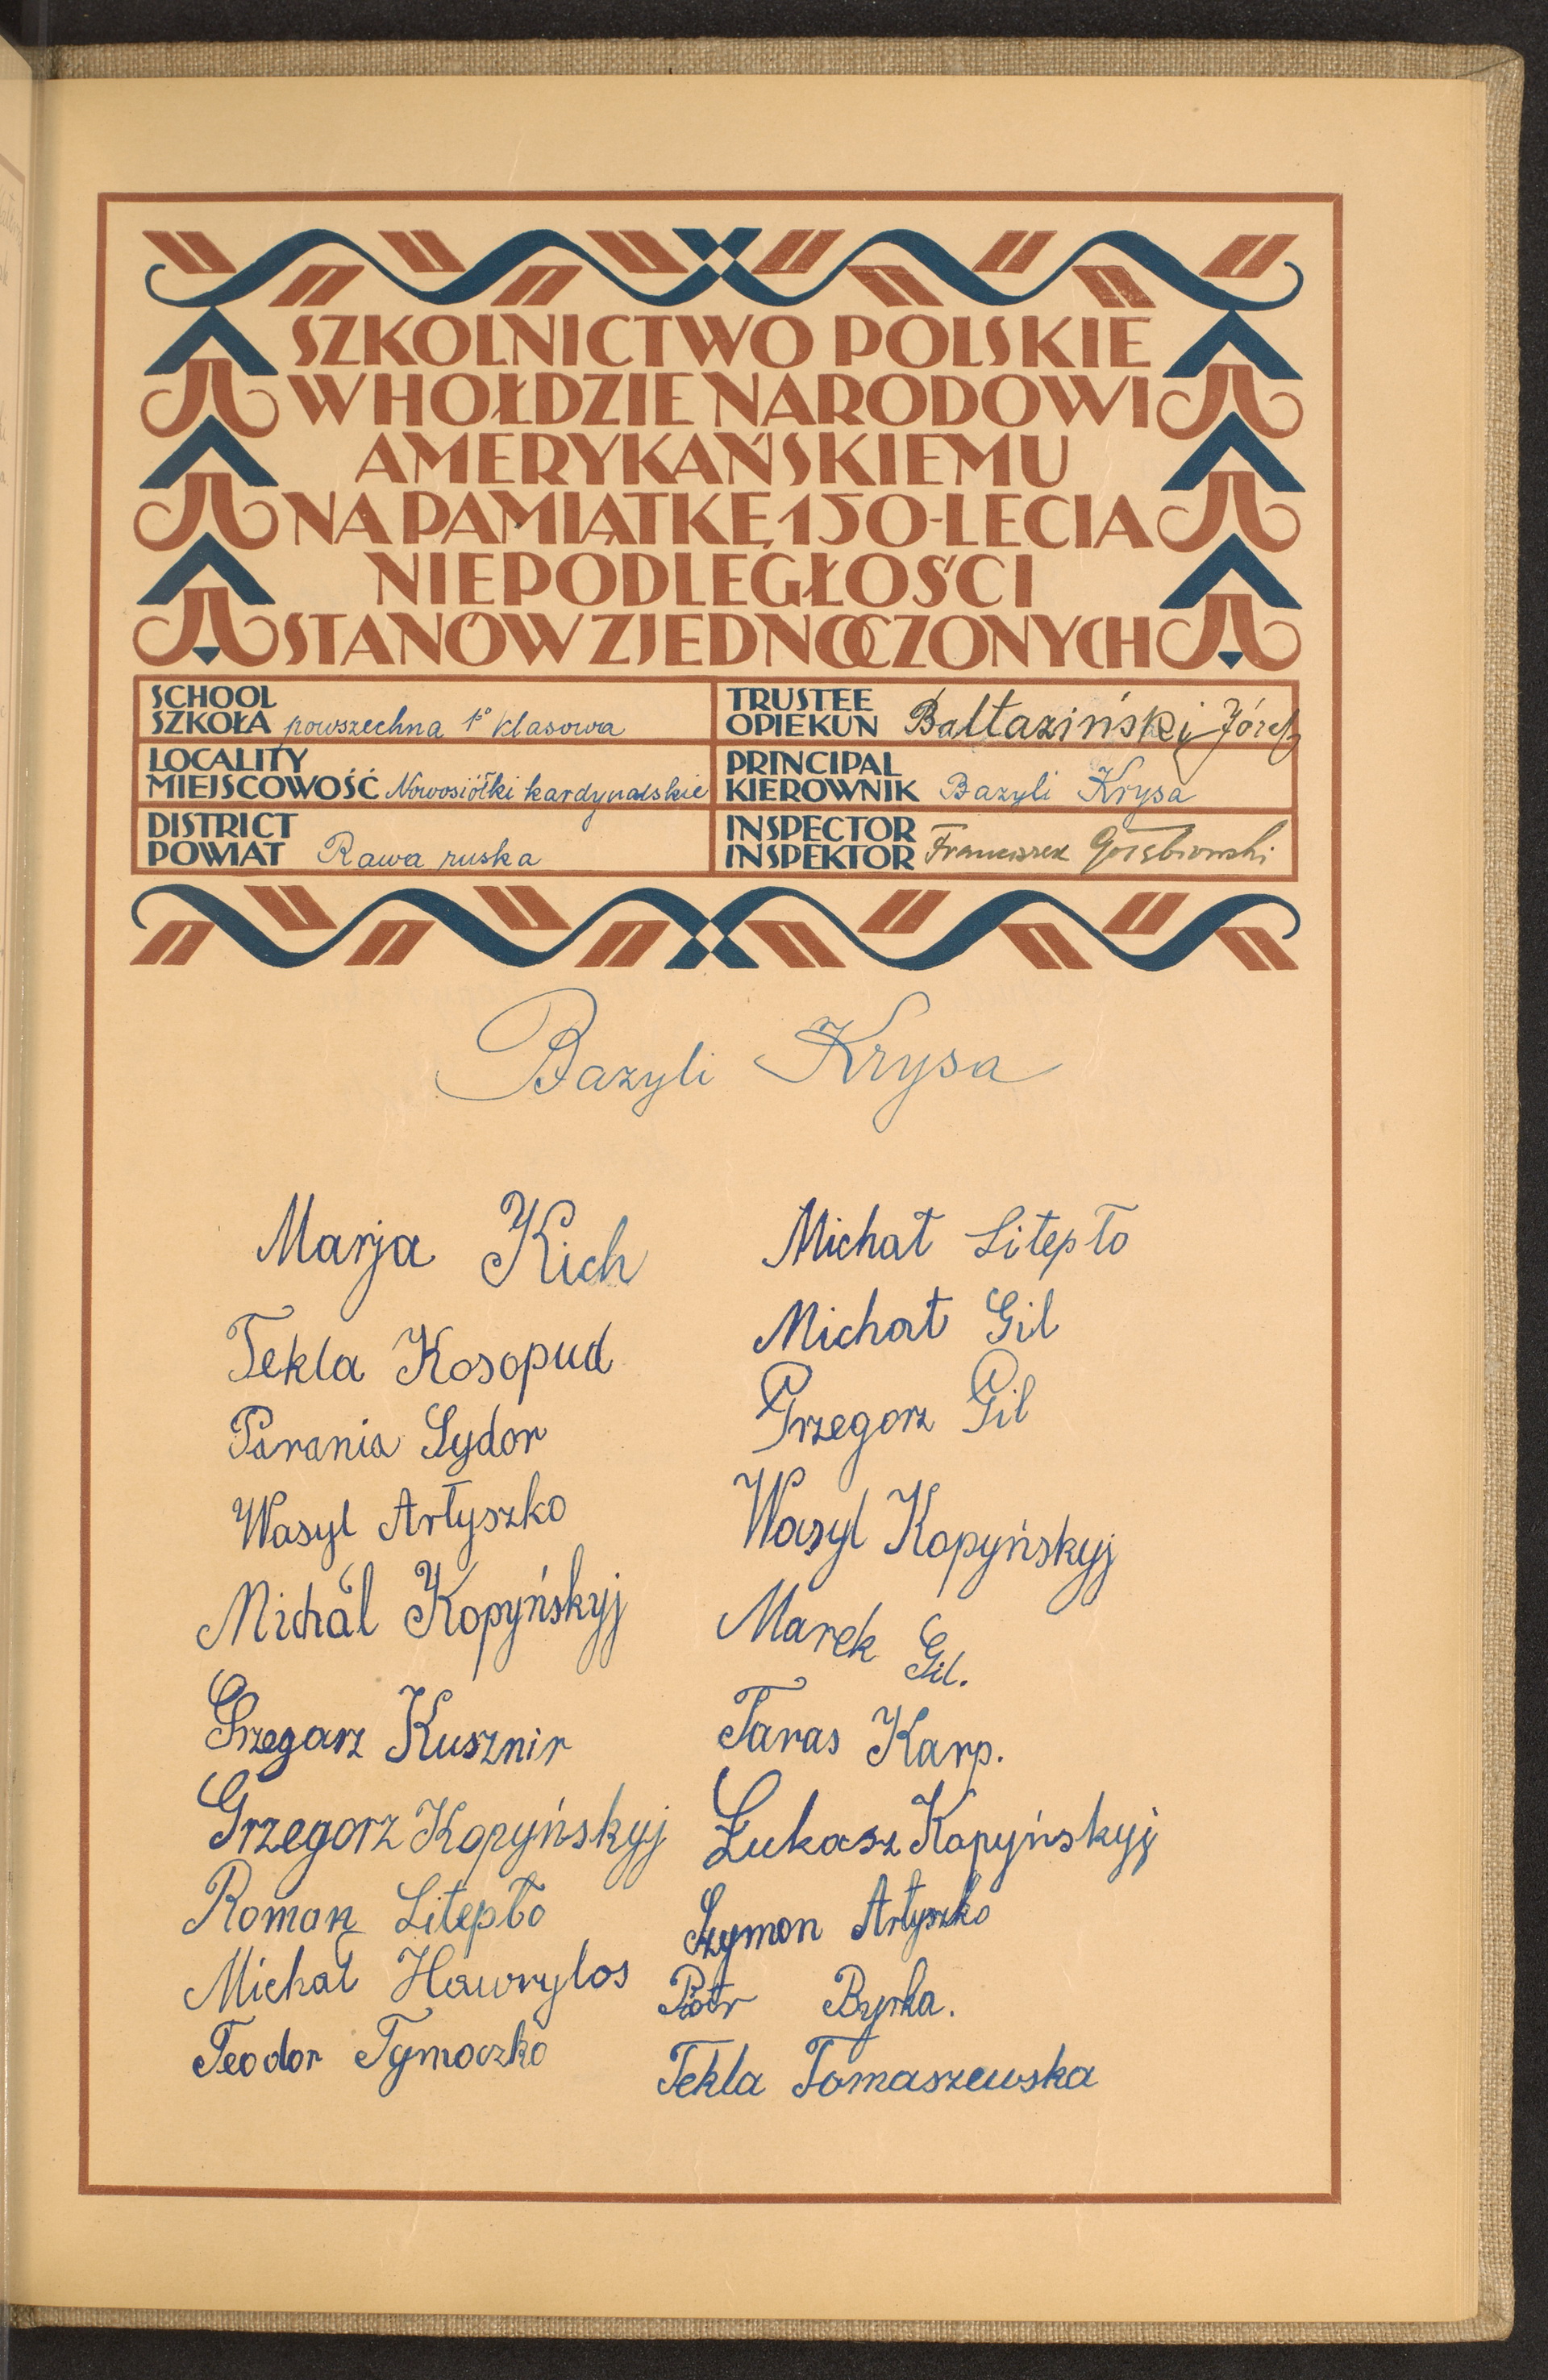 SZKOLNICTWO POLSKIE
W HOŁDZIE NARODOWI
AMERYKAŃSKIEMU
NA PAMIĄTKĘ 150-LECIA
NIEPODLEGŁOŚCI
STANÓW ZJEDNOCZONYCH
SCHOOL
SZKOŁA powszechna 1º klasowa
LOCALITY
MIEJSCOWOŚĆ Nowosiółki kardynalskie
DISTRICT
POWIAT Rawa ruska
TRUSTEE
OPIEKUN Baltaziński Józef
PRINCIPAL
KIEROWNIK Bazyli Krysa
INSPECTOR
INSPEKTOR Franciszek
Bazyli Krysa
Marja Kich
Tekla Kosopud
Parania Sydor
Wasyl Artyszko
Michál Kopyńskyj
Grzegorz Kusznir
Grzegorz Kopyńskyj
Roman Litepło
Michał Hawrylos
Teodor Tymoczko
Michał Litepło
Michał Gil
Grzegorz Gil
Wasyl Kopyńskyj
Marek Gil.
Taras Karp.
Łukasz Kopyńskyj
Szymon Artyszko
Piotr Byrka.
Tekla Tomaszewska